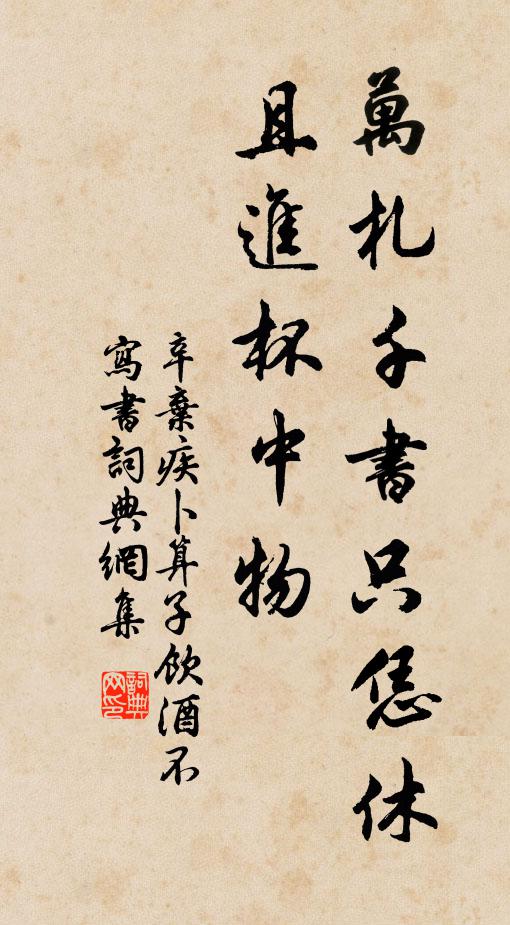 萬札千書只恁休
且進杯中物
辛棄疾卜算子飲酒不
寫書詞典網集
詞典
网印